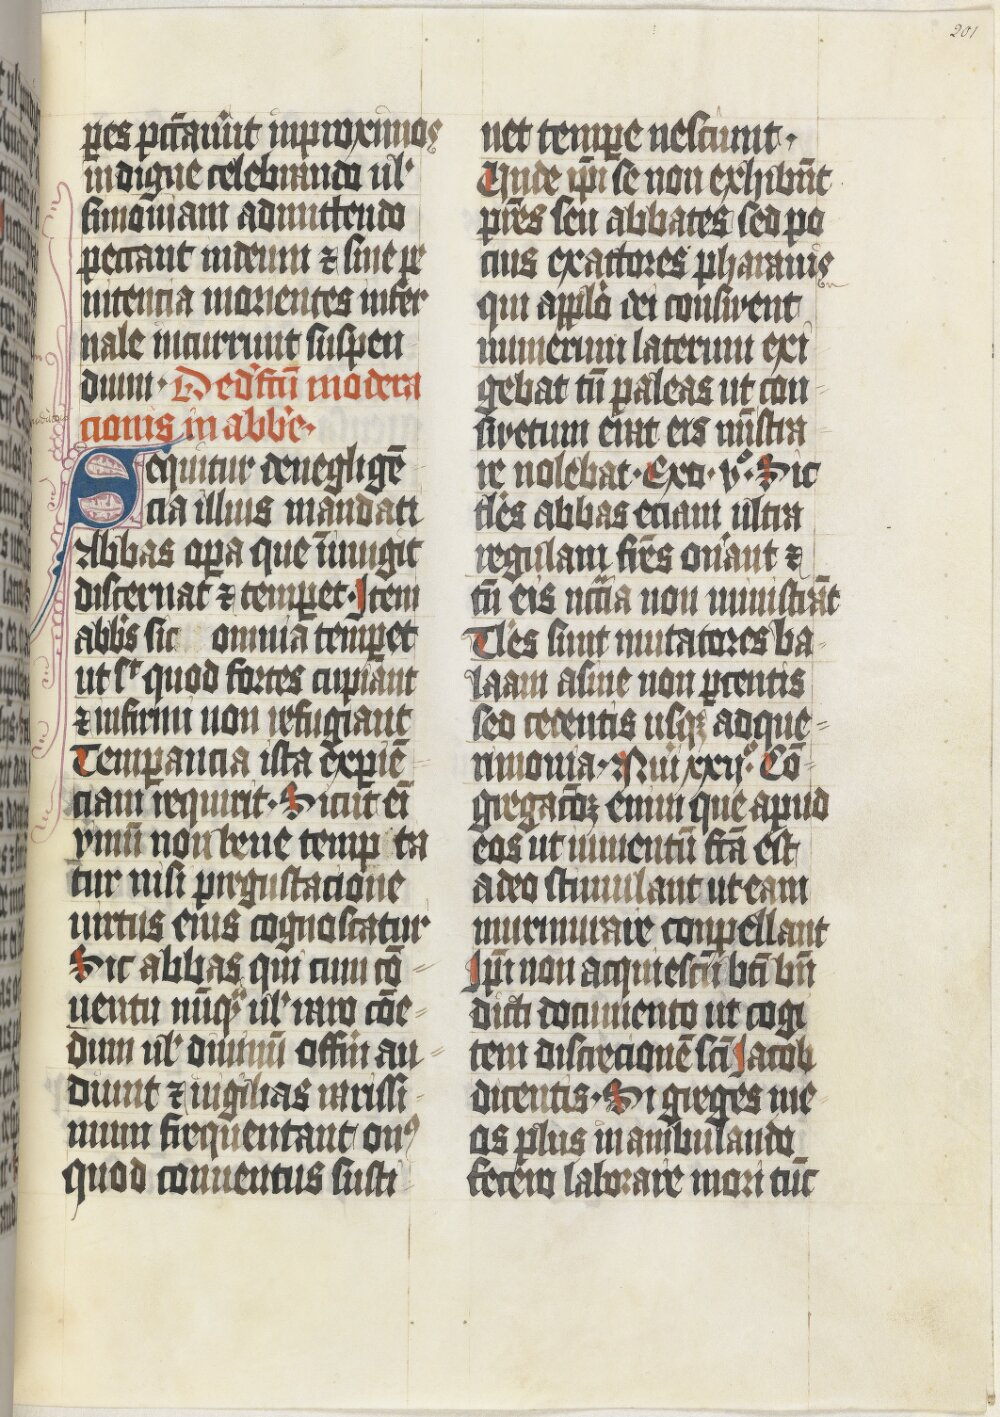 201
ꝑes pctāuīut inproximos
indigne celebrando ul'
simōniam admittendo
peccant in deum ⁊ sine pe
nitencia morientes infer
nale incurrunt suspen
dium. De dēfctū modera
cionis in abbe.
Sequitur de negligē
cia illius mandati
Abbas oꝑa que iniūgit
discernat ⁊ temꝑet. Item
abb's sic omnia temꝑet
ut s't quod fortes cupiant
⁊ infirmi non refugiant
Temꝑancia ista exꝑiē
ciam requirit. Sicut eī
vinū non bene temp ta
tur nisi pregustacione
uirtus eius cognoscatur
Sic abbas qui cum cō
uentu nūqᵃ ul' raro cōe
dum ul' diuinū offm̄ au
diunt ⁊ uigilias rarissi
mum frequentant onꝰ
quod conuentus susti
net temꝑe nesciunt.
Unde ip̄i se non exhibn̄t
pr̄es seu abbates sed po
cius exactores pharaonis
qui app̄lo dei consueuerant
numerum laterum exi
gebat tn̄ paleas ut con
suetum erat eis mīstra
re nolebat. Exo. vᵒ. Sic
tl'es abbas eciam ultra
regulam fr̄es on'ant ⁊
tn̄ eis nc̄cia non ministrāt
Tl'es sunt imitatores ba
laam asine non ꝑcentis
sed cedentis usqꝫ ad que
rimonia. Nūi xxijᵒ. Cō
gregac̄oꝫ enim que apud
eos ut iumentū fc̄ā est
adeo stimulant ut eam
murmurare conpellant
Ip̄i non acquiescūt bt̄i bn̄
dicti documento ut cogi
tent discrecionē sc̄i Jacob
dicentis. Si greges me
os plus in ambulando
fecero laborare mori tūc